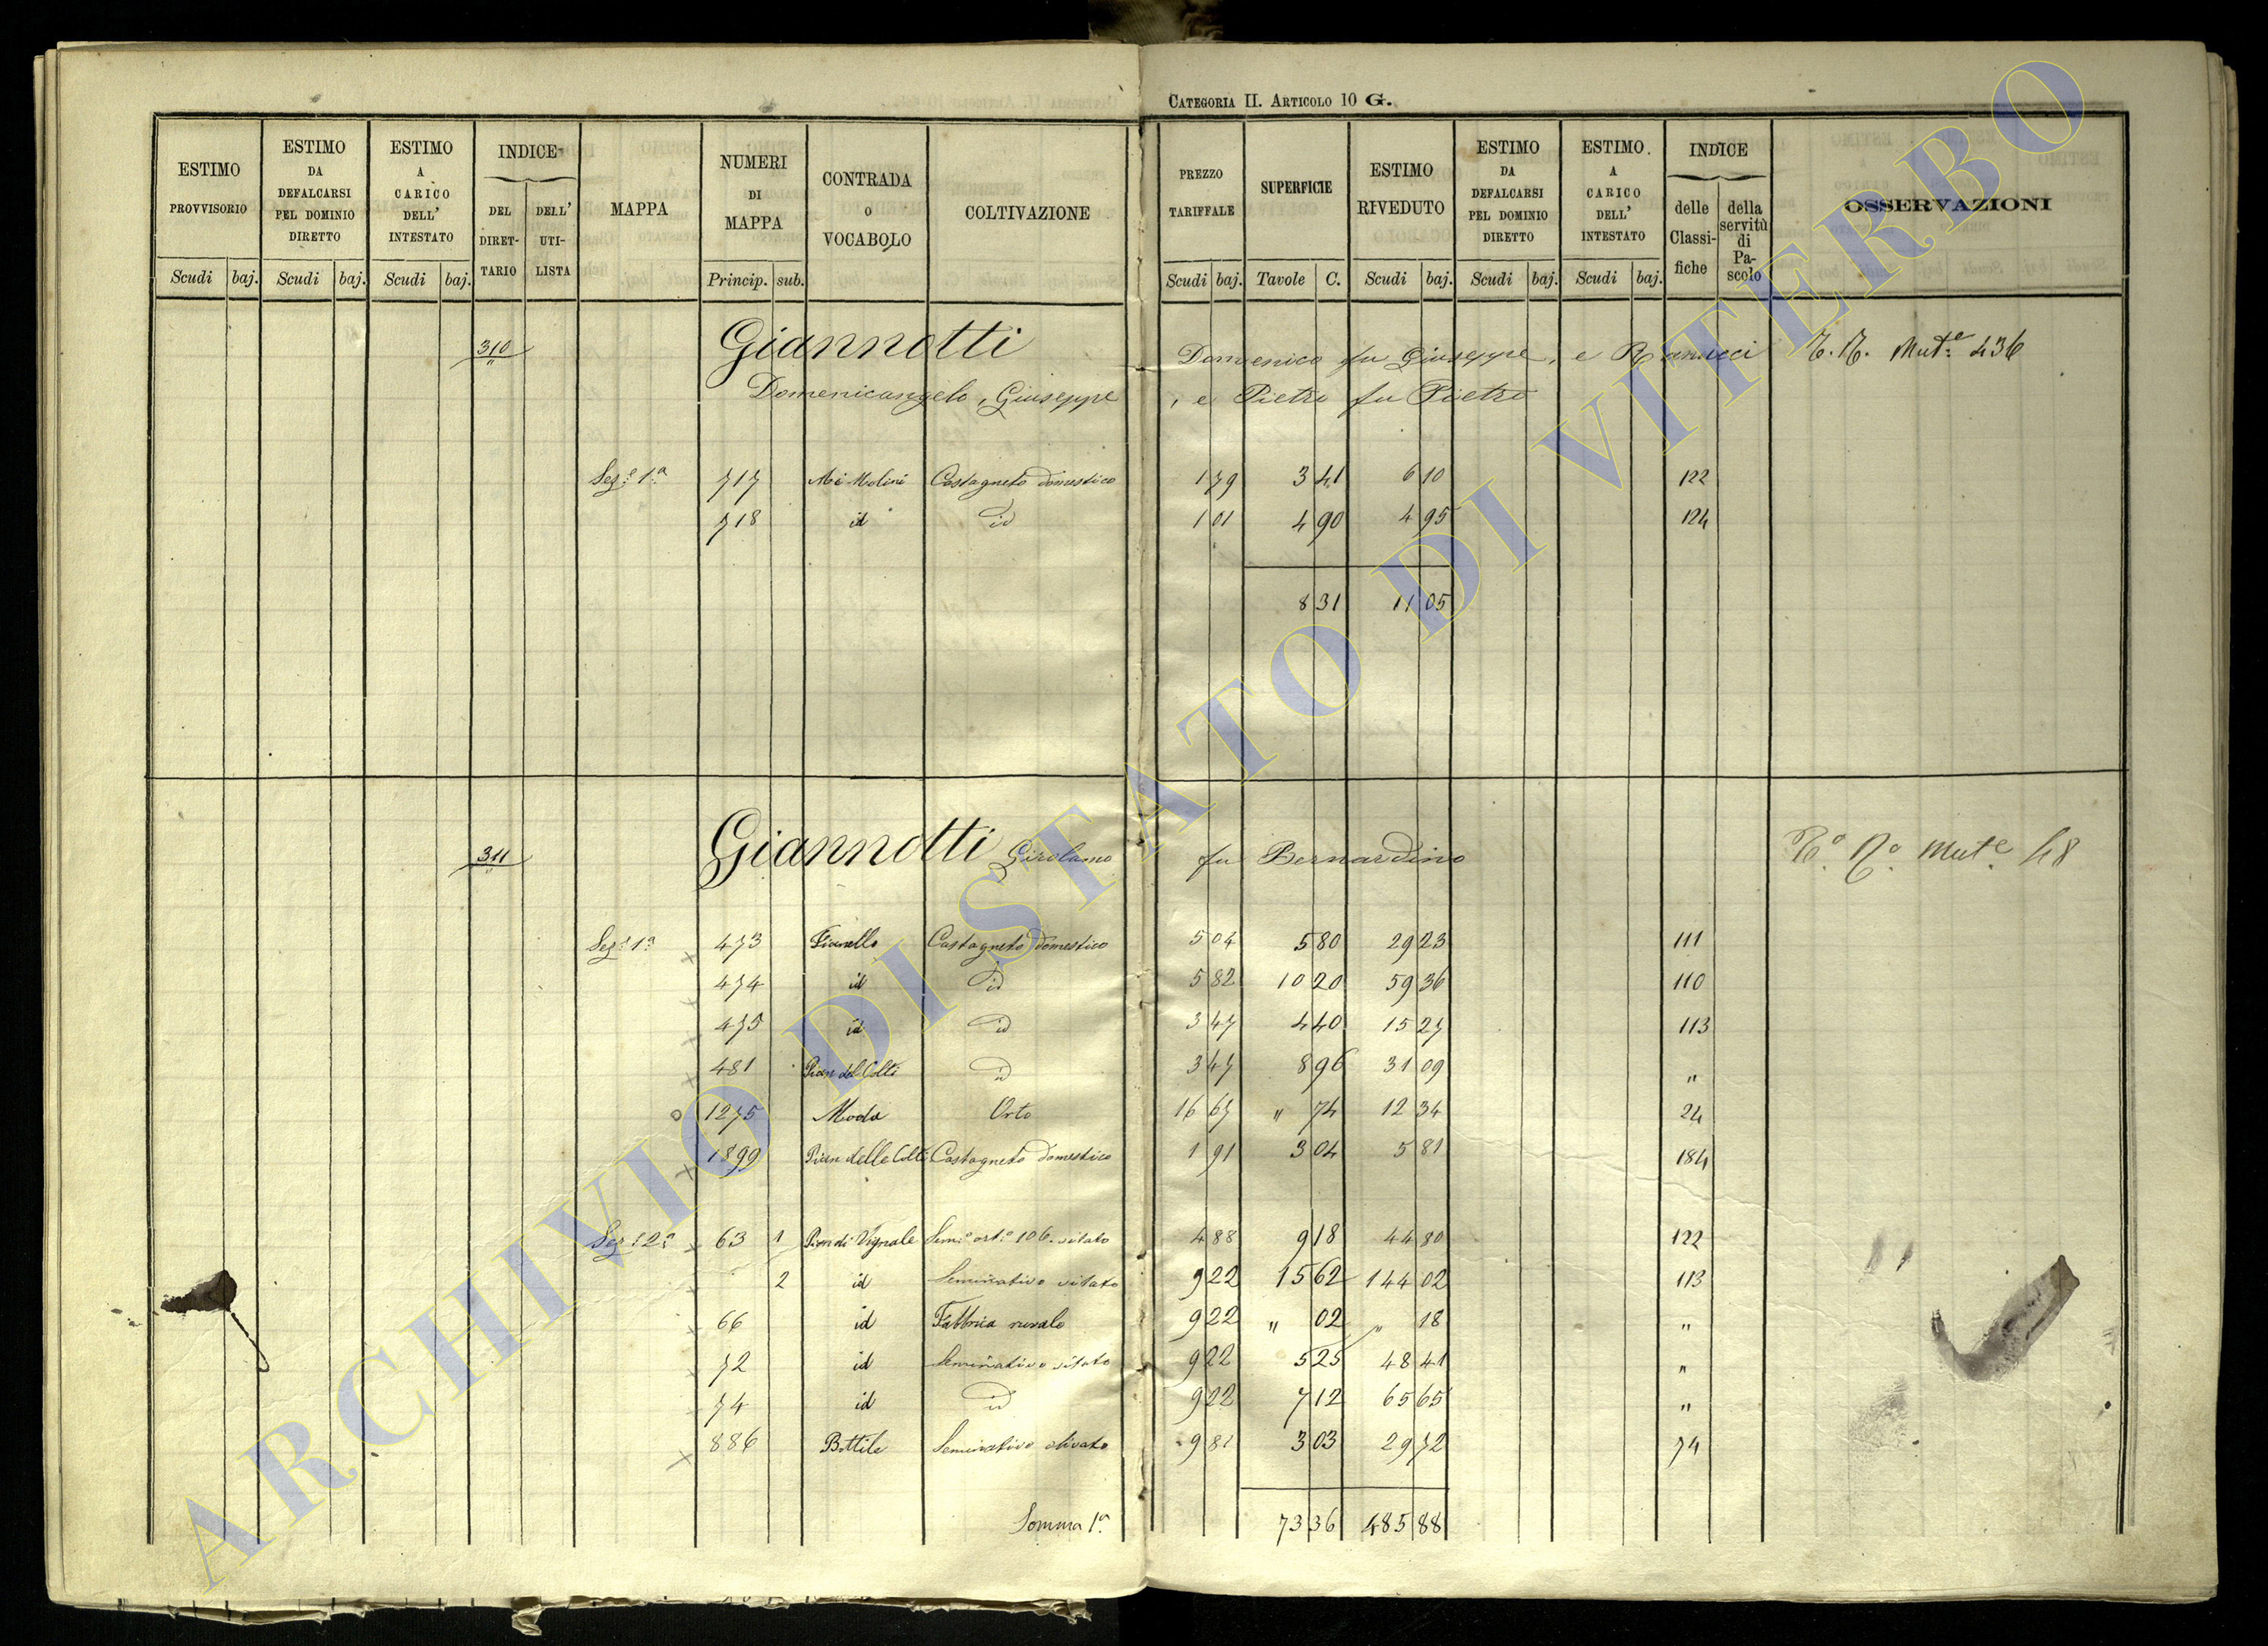 CATEGORIA II. ARTICOLO 10 G.
ESTIMO PROVVISORIO | ESTIMO DA DEFALCARSI PEL DOMINIO DIRETTO | ESTIMO A CARICO DELL' INTESTATO | INDICE DEL DIRETTARIO | DELL' UTILISTA | MAPPA | NUMERI DI MAPPA | CONTRADA O VOCABOLO | COLTIVAZIONE | PREZZO TARIFFALE | SUPERFICIE | ESTIMO RIVEDUTO | ESTIMO DA DEFALCARSI PEL DOMINIO DIRETTO | ESTIMO A CARICO DELL' INTESTATO | INDICE delle Classifiche | della servitù di Pascolo | OSSERVAZIONI
Scudi baj. Scudi baj. Scudi baj. Princip. sub. Scudi baj. Tavole C. Scudi baj. Scudi baj. Scudi baj.
310 Giannotti Domenico fu Giuseppe, e Ranucci T. N. Mut.e 436
Domenicangelo, Giuseppe, e Pietro fu Pietro
Sez.e 1a 717 Ai Molini Castagneto domestico 1 79 3 41 6 10 122
718 id id 1 01 4 90 4 95 124
8 31 11 05
311 Giannotti Girolamo fu Bernardino Mut.e 48
Sez.e 1a 473 Castagneto domestico 5 04 5 80 29 23 111
474 id id 5 82 10 20 59 36 110
475 id id 3 47 4 40 15 27 113
481 Pian del Colti id 3 47 8 96 31 09 "
1275 Moda Orto 16 67 " 74 12 34 24
1899 Pian delle Colti Castagneto domestico 1 91 3 04 5 81 184
Sez.e 2a 63 1 Pian di Vignale Sem.o ort.o 106. vitato 4 88 9 18 44 80 122
2 id Seminativo vitato 9 22 15 62 144 02 113
66 id Fabbrica rurale 9 22 " 02 " 18 "
72 id Seminativo vitato 9 22 5 25 48 41 "
74 id id 9 22 7 12 65 65 "
886 Bottile Seminativo olivato 9 81 3 03 29 72 74
Somma 1a 73 36 485 88
ARCHIVIO DI STATO DI VITERBO